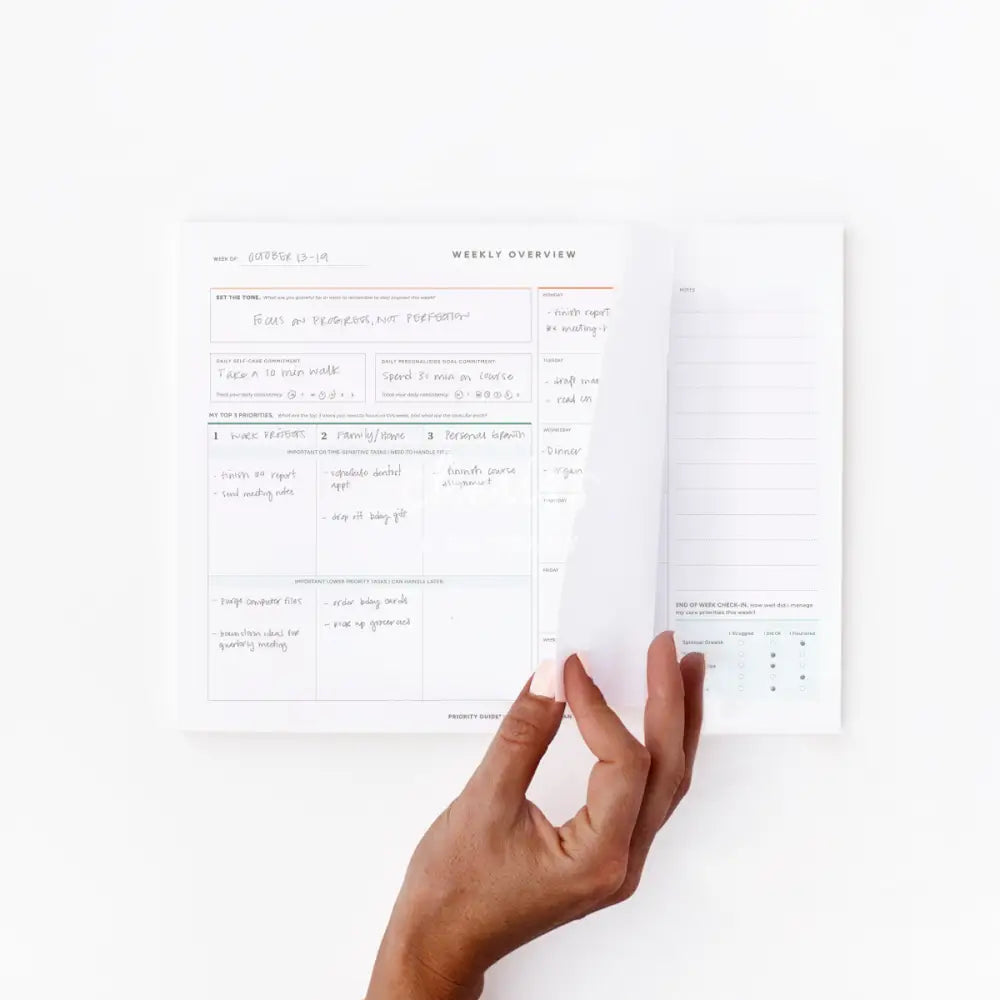 WEEK OF: OCTOBER 13-19
WEEKLY OVERVIEW
SET THE TONE.
FOCUS ON PROGRESS, NOT PERFECTION
DAILY SELF-CARE COMMITMENT:
Take a 10 min walk
Track your daily consistency:
DAILY PERSONAL/SIDE GOAL COMMITMENT:
Spend 30 min on course
Track your daily consistency:
MY TOP 3 PRIORITIES.
1 WORK PROJECTS
2 Family/Home
3 Personal Growth
IMPORTANT OR TIME-SENSITIVE TASKS I NEED TO HANDLE FIRST
- finish report
- send meeting notes
- schedule dentist
appt
- drop off bday gift
- finish course
assignment
IMPORTANT LOWER PRIORITY TASKS I CAN HANDLE LATER
- purge computer files
- brainstorm ideas for
quarterly meeting
- order bday cards
- pick up groceries
MONDAY
- finish report
meeting
TUESDAY
- draft
- read
WEDNESDAY
- Dinner
THURSDAY
FRIDAY
WEEK
PRIORITY GUIDE
NOTES
END OF WEEK CHECK-IN. How well did I manage
my core priorities this week?
I Struggled I Did OK I Flourished
Spiritual Growth